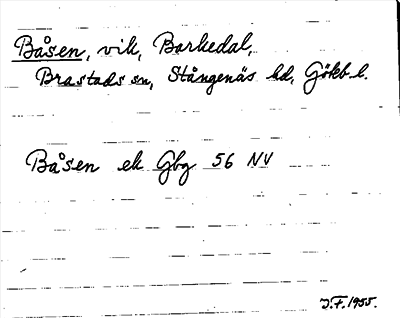 Båsen, vik, Barkedal,
Brastads sn, Stångenäs hd, Gökb l.
Båsen ek Gbg 56 NV
J.F. 1955.